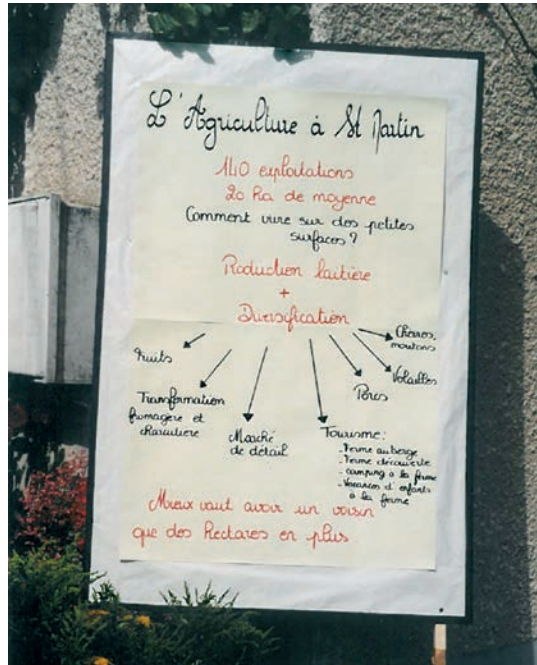 L'Agriculture à St Martin
140 exploitations
20 ha de moyenne
Comment vivre sur des petites
surfaces ?
Production laitière
+
Diversification
Fruits
Transformation
fromagère et
charcutière
Marché
de détail
Tourisme :
- Ferme auberge
- Ferme découverte
- camping à la ferme
- Vacances d'enfants
à la ferme
Porcs
Volailles
Chèvres,
moutons
Mieux vaut avoir un voisin
que des hectares en plus